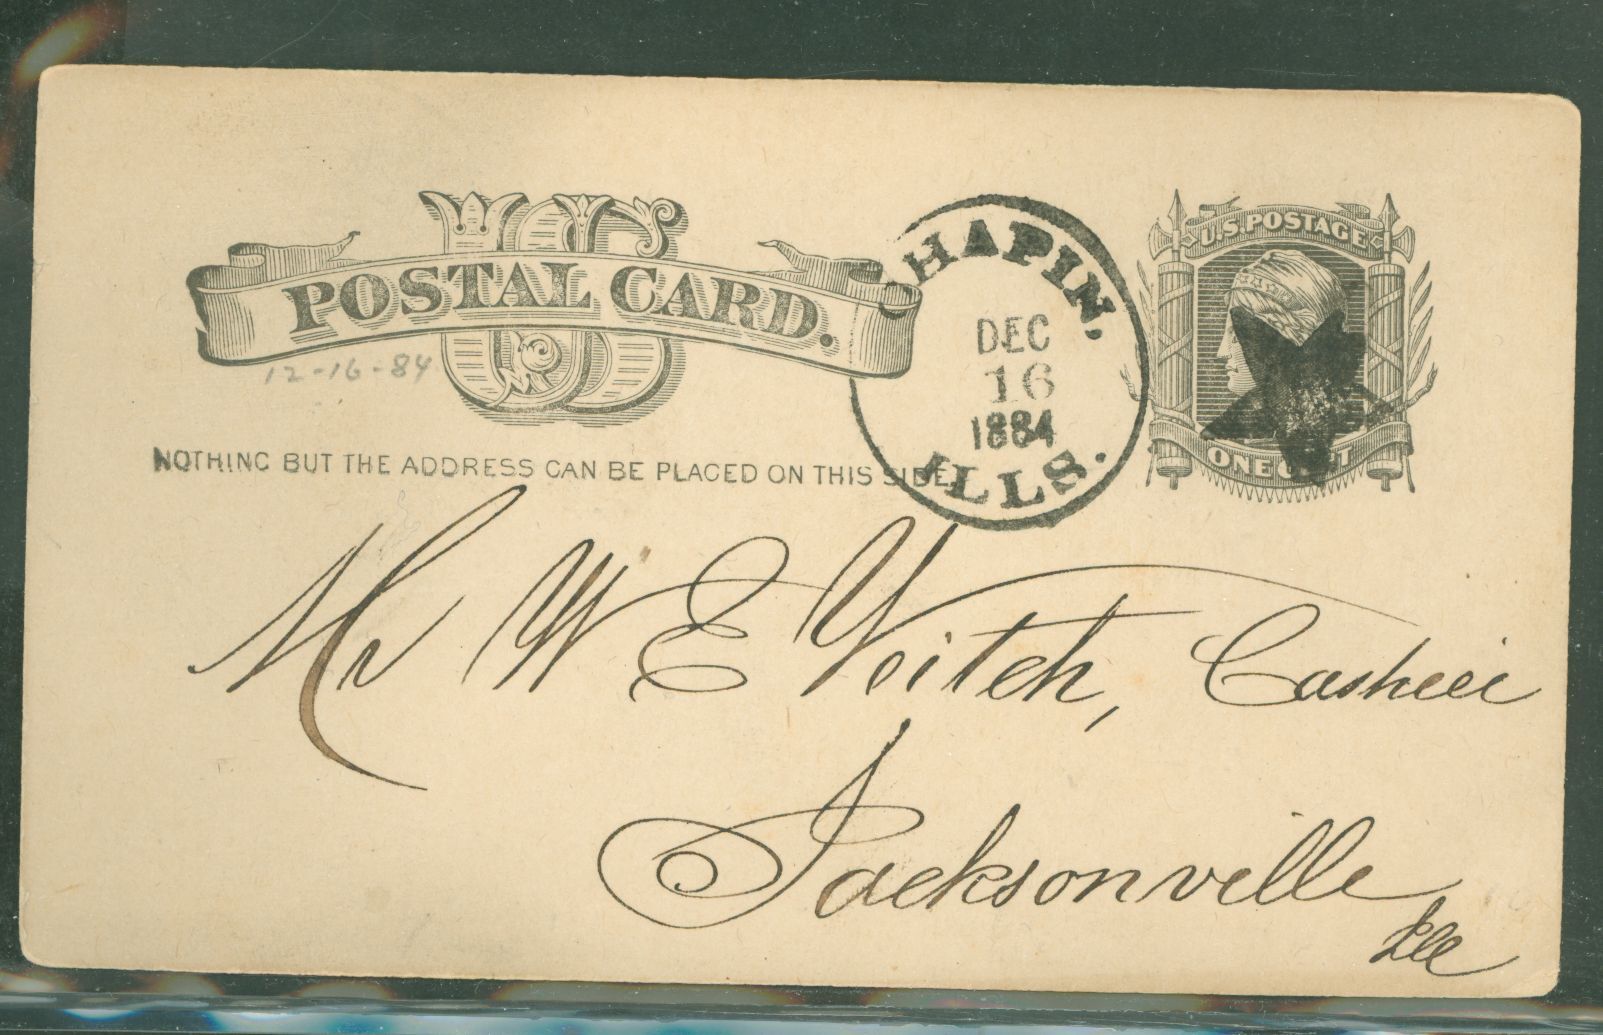 US
POSTAL CARD.
12-16-84
NOTHING BUT THE ADDRESS CAN BE PLACED ON THIS SIDE.
CHAPIN,
DEC
16
1884
ILLS.
U.S. POSTAGE
ONE CENT
Mr W E Veitch, Cashier
Jacksonville
Ill